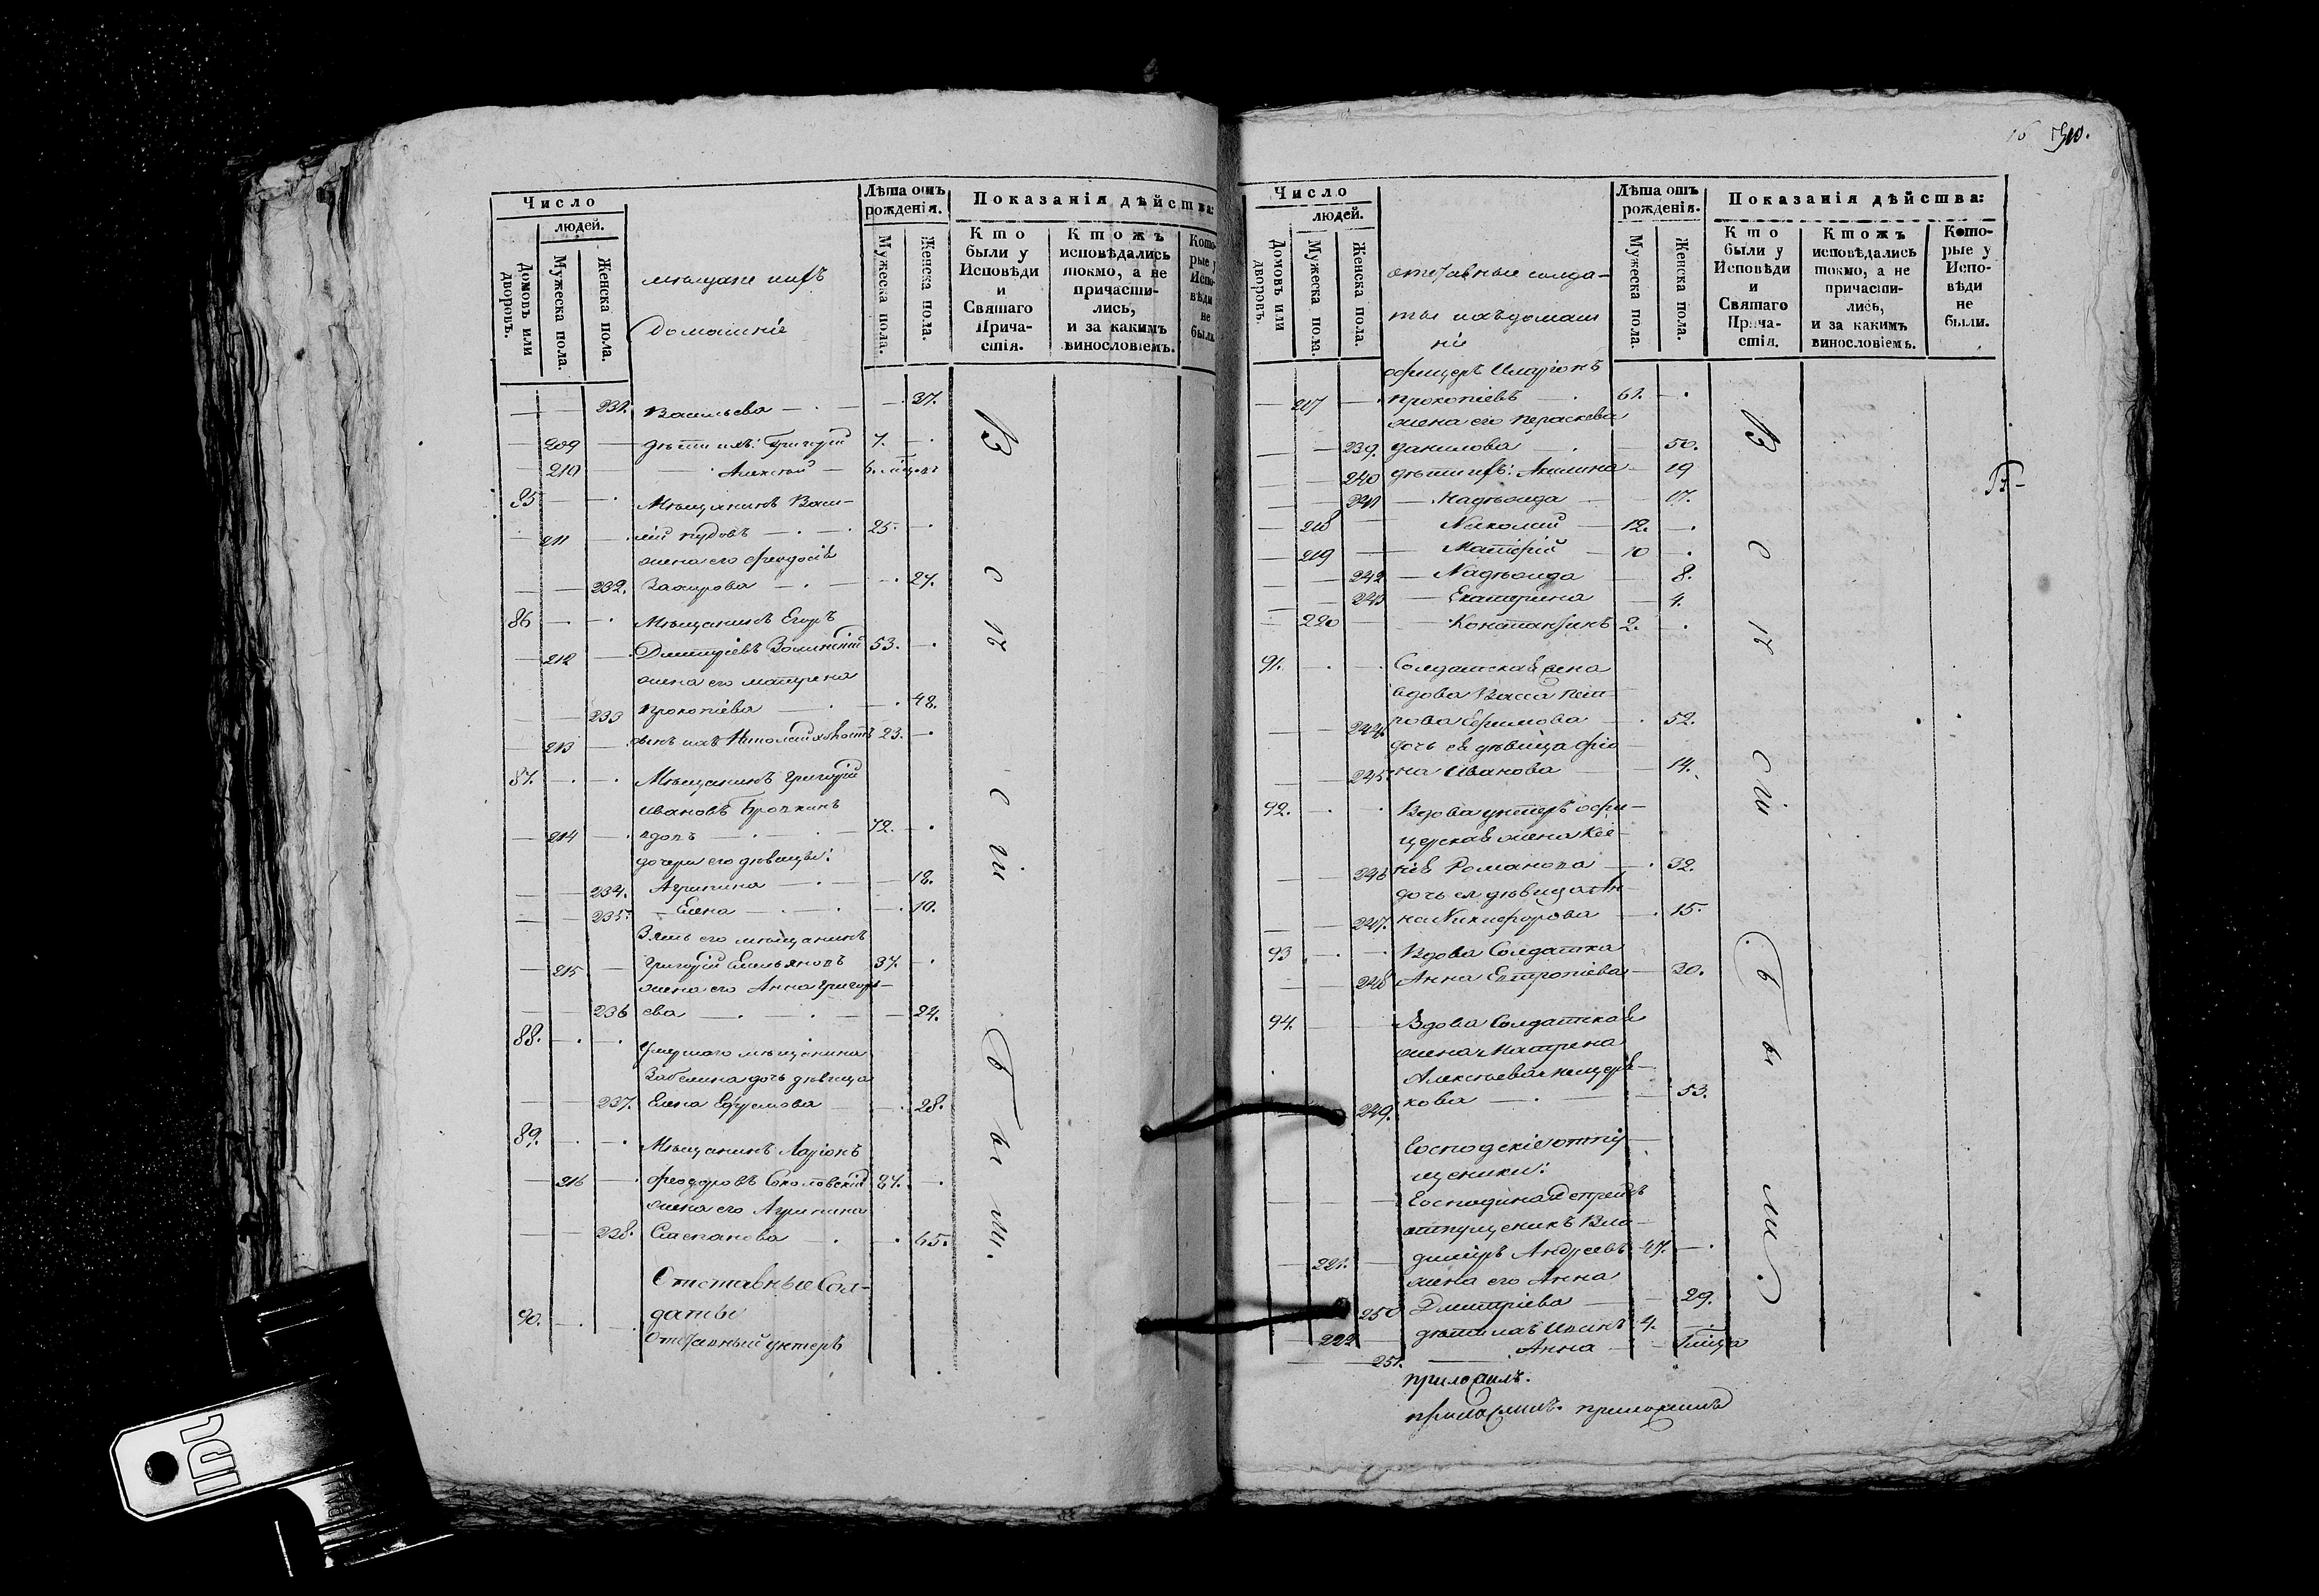 Число
людей.
Домовъ или дворовъ.
Мужеска пола.
Женска пола.
мѣщане ихъ
домашніе
Лѣта отъ
рожденія.
Мужеска пола.
Женска пола.
Показанія дѣйства:
Кто
были у
Исповѣди
и
Святаго
Прича-
стія.
Ктожъ
исповѣдались
токмо, а не
причасти-
лись,
и за какимъ
винословіемъ.
Кото-
рые у
Испо-
вѣди
не
были.
231. Васильева 37.
209 дѣти ихъ: Григорій 7.
210 Алексѣй 6. мѣцовъ
85. Мѣщанинъ Васи-
211 лій Пудовъ 25.
жена его Феодосія
232. 27.
86 Мѣщанинъ Егоръ
212 Дмитріевъ 53.
жена его Матрена
233 Прокопіева 48.
213 сынъ ихъ Николай холостъ 23.
87. Мѣщанинъ Григорій
Ивановъ
214 вдовъ 72.
дочери его дѣвицы:
234. Агрипина 18.
235. Елена 10.
Зять его мѣщанинъ
215 Григорій Емельяновъ 37.
жена его Анна Григорь-
236 ева 24.
88. Умершаго мѣщанина
Забелина дочь дѣвица
237. Елена Ефремова 28.
89. Мѣщанинъ Ларіонъ
216 Феодоровъ Соколовскій 87.
жена его Агрипина
238. Степанова 65.
Отставные Сол-
90. даты
Отставный унтеръ
В
с
ѣ
с
іи
б
ы
ли.
Число
людей.
Домовъ или дворовъ.
Мужеска пола.
Женска пола.
отставные солда-
ты ихъ домаш
ніе
Лѣта отъ
рожденія.
Мужеска пола.
Женска пола.
Показанія дѣйства:
Кто
были у
Исповѣди
и
Святаго
Прича-
стія.
Ктожъ
исповѣдались
токмо, а не
причасти-
лись,
и за какимъ
винословіемъ.
Кото-
рые у
Испо-
вѣди
не
были.
офицеръ Иларіонъ
217 Прокопіевъ 61.
жена его Параскева
239. Данилова 50.
240 дѣти ихъ: Акилина 19
241 Надежда 17.
218 Николай 12.
219 10
242 Надежда 8.
243 Екатерина 4.
220 Константинъ 2.
91. Солдатская жена
вдова Васса Пет-
244. рова Ефимова 52.
дочь ея дѣвица Фіо
245. на Иванова 14.
92. Вдова унтеръ офи-
церская жена Ксе-
246 нія Романова 32.
дочь ея дѣвица Ан
247. на Никифорова 15.
93 Вдова Солдатка
248 Анна Евтропіева 30.
94. Вдова Солдатская
жена Матрена
Алексѣева
249. кова 53.
Господскіе отпу-
щеники:
Господина
отпущеникъ Вла-
221. диміръ Андреевъ 47.
жена его Анна
250 Дмитріева 29.
222 дѣти ихъ 4.
251. Анна
В
с
ѣ
сіи
б
ы
ли.